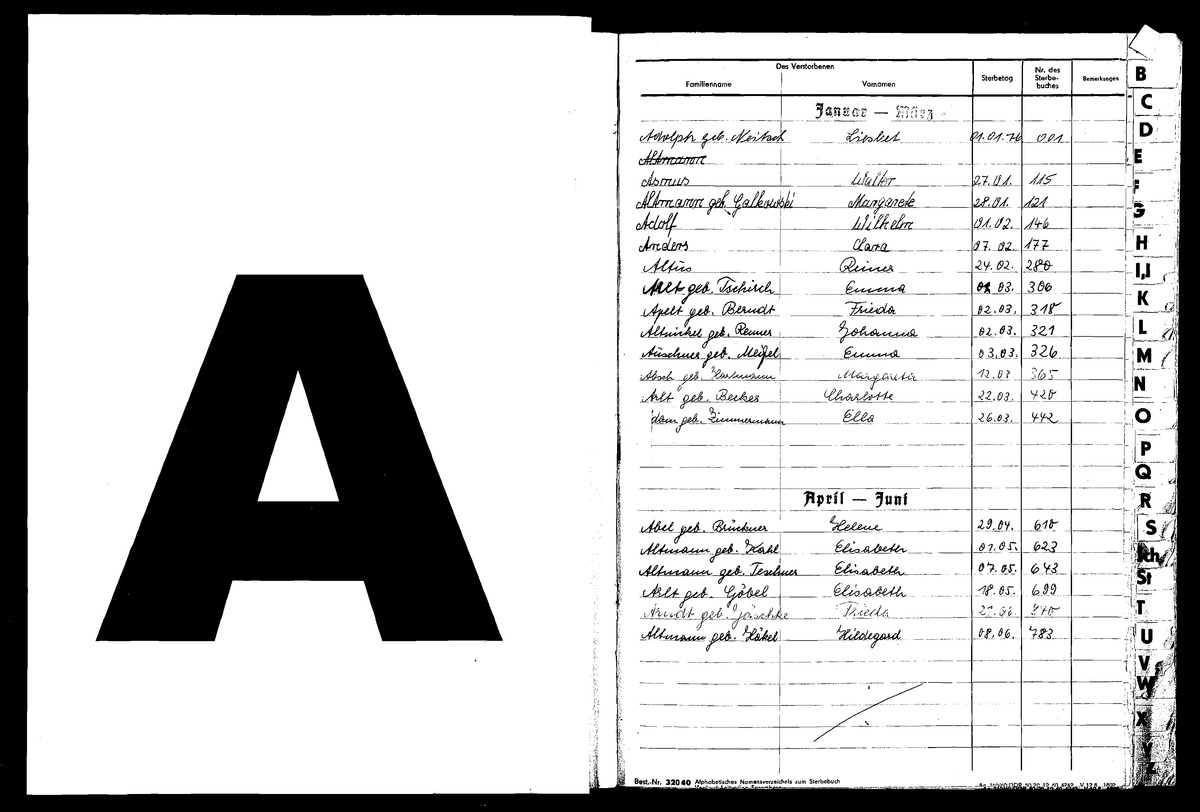 A
Des Verstorbenen
Familienname Vornamen Sterbetag Nr. des Sterbe-buches Bemerkungen
Januar — März
Adolph geb. Neitsch Liesbet 01.01.76 001
Altmann
Asmus Walter 27.01. 115
Altmann geb. Galkowski Margarete 28.01. 121
Adolf Wilhelm 01.02. 146
Anders Clara 07.02. 177
Altus Reiner 24.02. 280
Arlt geb. Tschirch Emma 02.03. 306
Apelt geb. Berndt Frieda 02.03. 318
Altwinkel geb. Renner Johanna 02.03. 321
Auschner geb. Meißel Emma 03.03. 326
Absch geb. Hartmann Margareta 12.03 365
Arlt geb. Becker Charlotte 22.03. 420
dam geb. Zimmermann Ella 26.03. 442
April — Juni
Abel geb. Brückner Helene 29.04. 610
Altmann geb. Kahl Elisabeth 01.05. 623
Altmann geb. Teschner Elisabeth 07.05. 643
Arlt geb. Göbel Elisabeth 18.05. 699
Arndt geb. Jäschke Frieda 740
Altmann geb. Häkel Hildegard 08.06. 783
Best.-Nr. 32040 Alphabetisches Namensverzeichnis zum Sterbebuch
B
C
D
E
F
G
H
I,J
K
L
M
N
O
P
Q
R
S
Sch
St
T
U
V
W
X
Y
Z